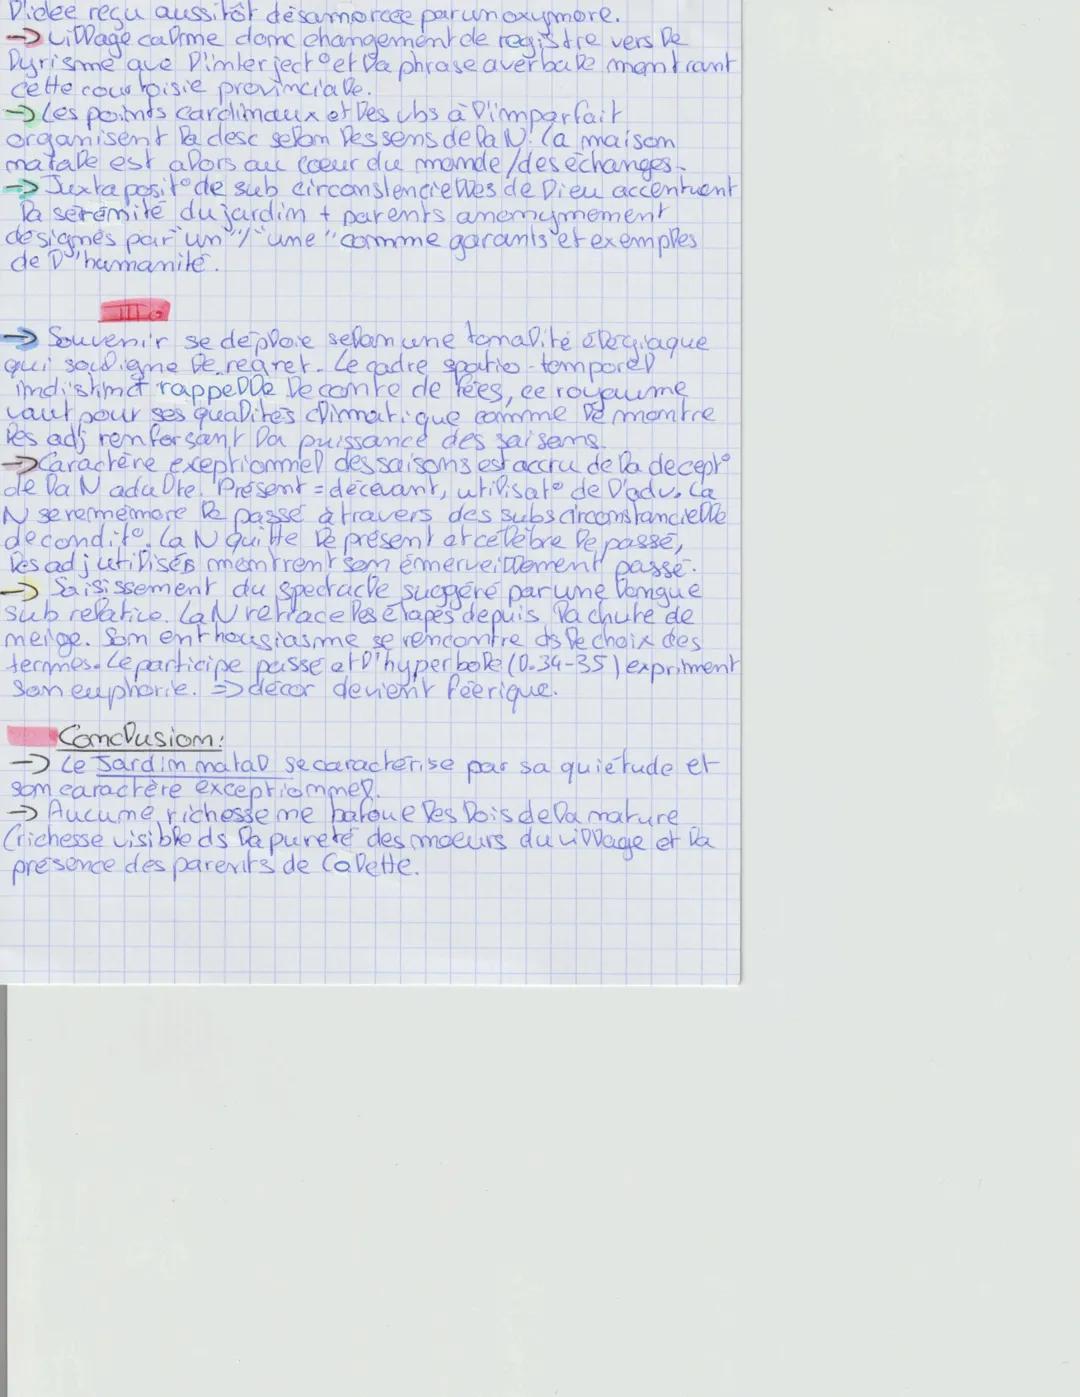 l'idée reçu aussitôt désamorcée par un oxymore.
-> Village calme donc changement de registre vers le
lyrisme que l'interject° et la phrase averbale montrant
cette courtoisie provinciale.
-> Les points cardinaux et les vbs à l'imparfait
organisent la desc selon les sens de la N. La maison
natale est alors au coeur du monde/des échanges.
-> Juxtaposit° de sub circonstencielles de lieu accentuent
la sérénité du jardin + parents anonymement
désignés par "un"/"une" comme garants et exemples
de l'humanité.
III.
-> Souvenir se déploie selon une tonalité élégiaque
qui souligne le regret. Le cadre spatio-temporel
indistinct rappelle le conte de fées, ce royaume
vaut pour ses qualités climatique comme le montre
les adj renforsant la puissance des saisons.
-> Caractère exeptionnel des saisons est accru de la decept°
de la N adulte. Présent = décevant, utilisat° de l'adv. La
N se remémore le passé à travers des subs circonstancielle
de condit°. La N quitte le présent et célèbre le passé,
les adj utilisés montrent son émerveillement passé.
-> Saisissement du spectacle suggéré par une longue
sub relative. La N retrace les étapes depuis la chute de
neige. Son enthousiasme se rencontre ds le choix des
termes. Le participe passé et l'hyperbole (l.34-35) expriment
son euphorie. => décor devient féerique.
Conclusion:
-> Le Jardin natal se caractérise par sa quiétude et
son caractère exceptionnel.
-> Aucune richesse ne bafoue les lois de la nature
(richesse visible ds la pureté des moeurs du village et la
présence des parents de Colette.